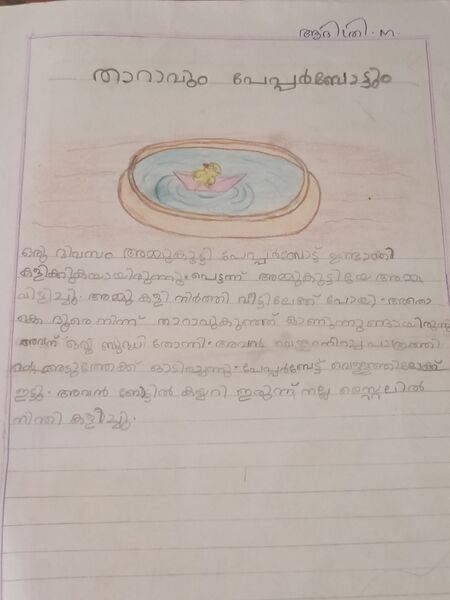 ആദിത്രി. M.
താറാവും പേപ്പർബോട്ടും
ഒരു ദിവസം അമ്മുക്കുട്ടി പേപ്പർബോട്ട് ഉണ്ടാക്കി
കളിക്കുകയായിരുന്നു. പെട്ടന്ന് അമ്മുകുട്ടിയെ അമ്മ
വിളിച്ചു. അമ്മു കളി നിർത്തി വീട്ടിലേക്ക് പോയി.
ദൂരെ നിന്ന് താറാവുകുഞ്ഞ് കാണുന്നുണ്ടായിരുന്നു
അവന് ഒരു ബുദ്ധി തോന്നി. അവൻ വെള്ളംനിറച്ച പാത്രത്തി
അടുത്തേക്ക് ഓടിവന്നു. പേപ്പർബോട്ട് വെള്ളത്തിലേക്ക്
ഇട്ടു. അവൻ ബോട്ടിൽ കയറി ഇരുന്ന് നല്ല സ്റ്റൈലിൽ
നീന്തി കളിച്ചു.